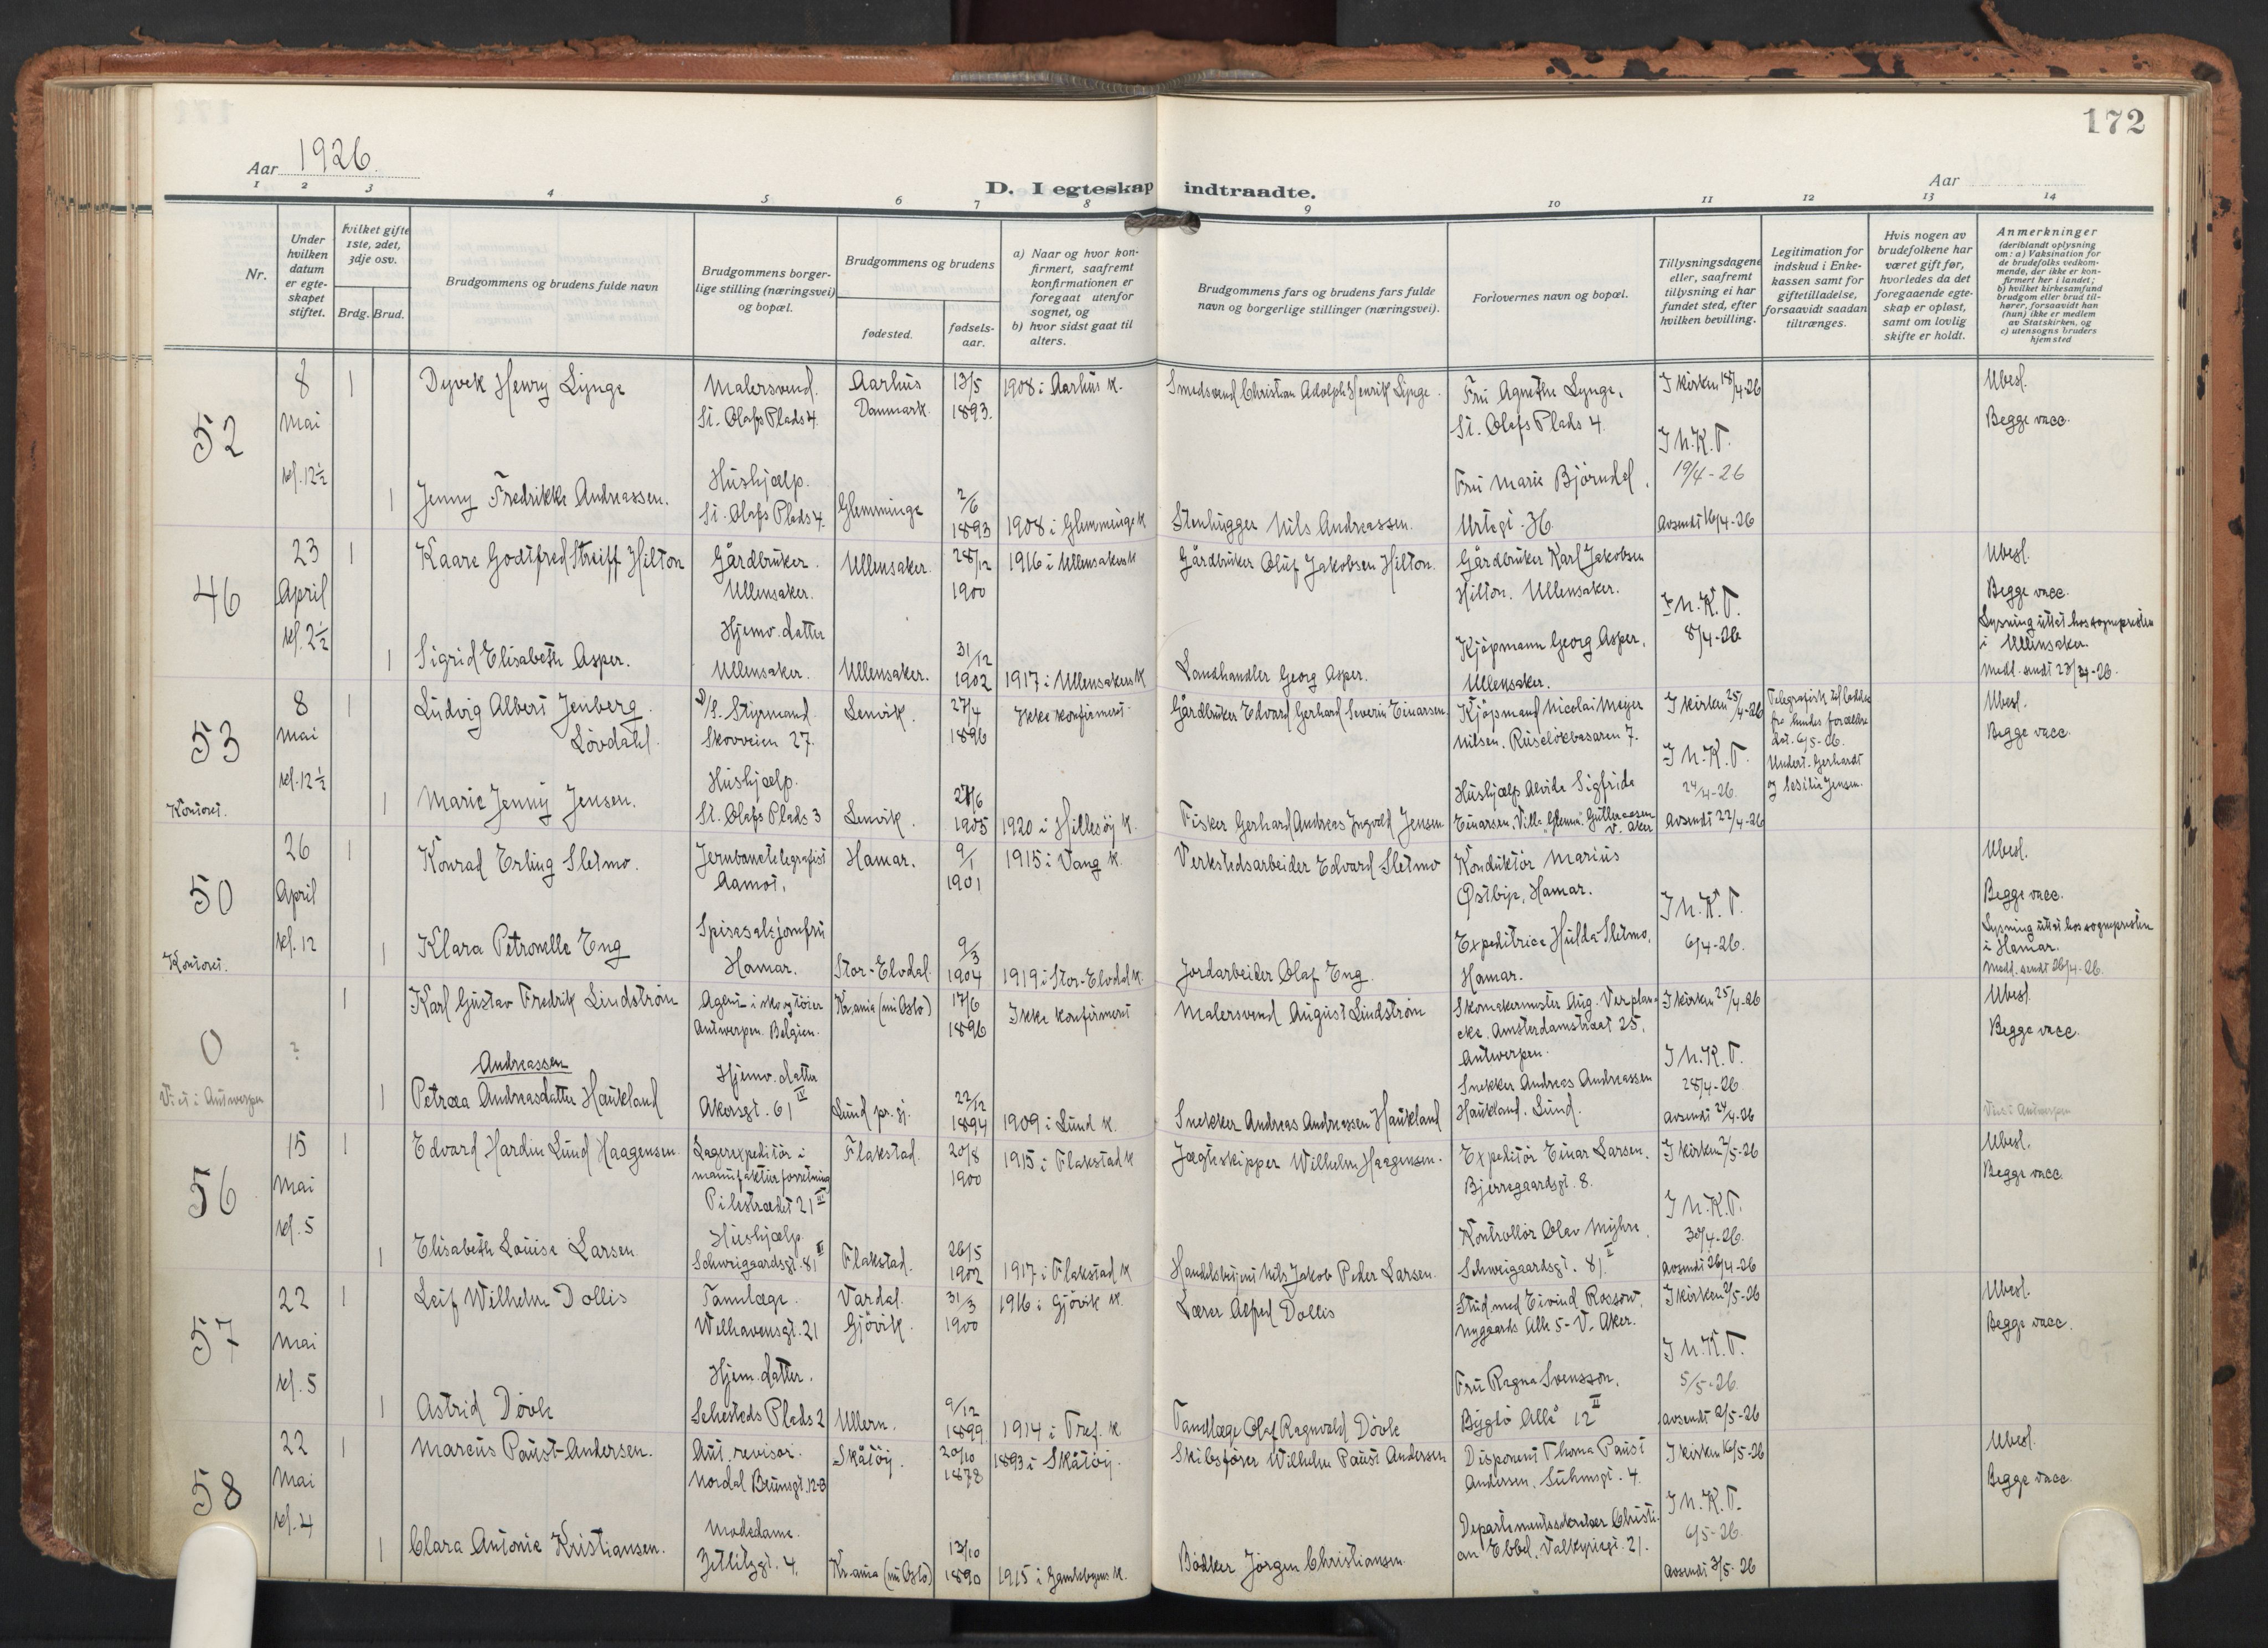 172
Aar 1926.
D. I egteskap indtraadte.
Aar
1 2 3 4 5 6 7 8 9 10 11 12 13 14
Nr.
Under hvilken datum er egteskapet stiftet.
hvilket gifte 1ste, 2det, 3dje osv.
Brdg. Brud.
Brudgommens og brudens fulde navn
Brudgommens borgerlige stilling (næringsvei) og bopæl.
Brudgommens og brudens
fødested.
fødselsaar.
a) Naar og hvor konfirmert, saafremt konfirmationen er foregaat utenfor sognet, og
b) hvor sidst gaat til alters.
Brudgommens fars og brudens fars fulde navn og borgerlige stillinger (næringsvei).
Forlovernes navn og bopæl.
Tillysningsdagene eller, saafremt tillysning ei har fundet sted, efter hvilken bevilling.
Legitimation for indskud i Enkekassen samt for giftetilladelse, forsaavidt saadan tiltrænges.
Hvis nogen av brudefolkene har været gift før, hvorledes da det foregaaende egteskap er opløst, samt om lovlig skifte er holdt.
Anmerkninger
(deriblandt oplysning om: a) Vaksination for de brudefolks vedkommende, der ikke er konfirmert her i landet;
b) hvilket kirkesamfund brudgom eller brud tilhører, forsaavidt han (hun) ikke er medlem av Statskirken, og
c) utensogns bruders hjemsted
52
8 Mai kl. 12½
1 Dyvek Henry Lynge
Malersvend. St. Olafs Plads 4.
Aarhus Danmark.
13/5 1893.
1908 i Aarhus k.
Smedsvend Christian Adolph Henrik Lynge.
Fru Agnethe Lynge, St. Olafs Plads 4.
I kirken 18/4-26
I N.K.T. 19/4-26
Ubesl.
Begge vacc.
1 Jenny Fredrikke Andreassen.
Hushjælp. St. Olafs Plads 4.
Glemminge
2/6 1893
1908 i Glemminge k
Stenhugger Nils Andreassen.
Fru Marie Bjørndal, Urtegt. 36.
Avsendt 16/4-26
46
23 April kl. 2½
1 Kaare Godtfred Streiff Hilton
Gårdbruker. Ullensaker.
Ullensaker.
28/12 1900
1916 i Ullensakers k
Gårdbruker Oluf Jakobsen Hilton.
Gårdbruker Karl Jakobsen Hilton. Ullensaker.
I N.K.T. 8/4-26
Ubesl.
Begge vacc.
Lysning uttat hos sognepresten i Ullensaker.
Medl. sendt 23/4-26.
1 Sigrid Elisabeth Asper.
Hjemv. datter Ullensaker.
Ullensaker.
31/12 1902
1917 i Ullensakers k
Landhandler Georg Asper.
Kjøpmann Georg Asper, Ullensaker.
53
Kontoret.
8 Mai kl. 12½
1 Ludvig Albert Jenberg Løvdahl.
D/S. Styrmand. Skovveien 27.
Lenvik.
27/4 1896
Ikke konfirmert.
Gårdbruker Edvard Gerhard Severin Einarsen
Kjøpmand Nicolai Meyer Nilsen. Ruseløkbasaren 7.
I kirken 25/4-26
I N.K.T. 24/4-26.
Telegrafisk tilladelse fra hendes forældre dat. 6/5-26.
Undert. Gerhardt J Sesilia Jensen.
Ubesl.
Begge vacc.
1 Marie Jenny Jensen.
Hushjælp. St. Olafs Plads 3
Lenvik.
27/6 1905
1920 i Hillesøy k.
Fisker Gerhard Andreas Ingvald Jensen
Hushjælp Alvida Sigfrida Einarsen, Villa "Glenna". Gulleraasen V. Aker
Avsendt 22/4-26
50
Kontoret.
26 April kl. 12
1 Konrad Erling Sletmo.
Jernbanetelegrafist Aamot.
Hamar.
9/1 1901
1915 i Vang k.
Verkstedsarbeider Edvard Sletmo
Konduktør Marius Østbye, Hamar.
I N.K.T. 6/4-26.
Ubesl.
Begge vacc.
Lysning uttat hos sognepresten i Hamar.
Medl. sendt 26/4-26.
1 Klara Petronelle Eng
Spisesalsjomfru Hamar.
Stor-Elvdal.
9/3 1904
1919 i Stor-Elvdal k.
Jordarbeider Olaf Eng.
Expeditrice Hulda Sletmo, Hamar.
0
Viet i Antwerpen
?
1 Karl Gustav Fredrik Lindstrøm
Agent i skogtøier Antwerpen. Belgien.
Kr.ania (nu Oslo)
17/6 1896
Ikke konfirmert
Malersvend August Lindstrøm
Skomakermester Aug. Verplancke. Amsterdamstraat 25. Antwerpen.
I kirken 25/4-26
I N.K.T. 28/4-26
Ubesl.
Begge vacc.
Andreassen
1 Petræa Andreasdatter Haukland
Hjemv. datter Akersgt. 61 IV
Lund pr.gj.
22/12 1894
1909 i Lund k.
Snekker Andreas Andreassen Haukland
Snekker Andreas Andreassen Haukland. Lund.
Avsendt 24/4-26
Viet i Antwerpen
56
15 Mai kl. 5
1 Edvard Hardin Lund Haagensen.
Lagerexpeditør i manufakturforretning Pilestrædet 21 III
Flakstad.
20/8 1900
1915 i Flakstad k
Jægteskipper Wilhelm Haagensen.
Expeditør Einar Larsen. Bjerregaardsgt. 8.
I kirken 2/5-26
I N.K.T. 30/4-26.
Ubesl.
Begge vacc.
1 Elisabeth Louise Larsen
Hushjælp. Schweigaardsgt. 81 II
Flakstad.
26/5 1902
1917 i Flakstad k
Handelsbetjent Nils Jakob Peder Larsen.
Kontrollør Olav Myhre. Schweigaardsgt. 81 II
Avsendt 26/4-26
57
22 Mai kl. 5
1 Leif Wilhelm Dollis
Tannlæge. Welhavensgt. 21
Vardal. Gjøvik.
31/3 1900
1916 i Gjøvik k.
Lærer Alfred Dollis
Stud. med Eivind Rossow, Nygaards Allé 5 - V. Aker.
I kirken 2/5-26
I N.K.T. 5/5-26.
Ubesl.
Begge vacc.
1 Astrid Døvle
Hjem. datter. Sehesteds Plads 2
Ullern.
9/12 1899
1914 i Tref. k
Tandlæge Olaf Ragnvald Døvle
Fru Ragna Svensson, Bygdø Allé 12 II
Avsendt 2/5-26
58
22 Mai kl. 4
1 Marcus Paust-Andersen.
Aut. revisor. Nordal Brunsgt. 12-B
Skåtøy.
20/10 1878
1893 i Skåtøy.
Skibsfører Wilhelm Paust Andersen
Disponent Thoma Paust Andersen, Suhmsgt. 4.
I kirken 16/5-26
I N.K.T. 6/5-26.
Ubesl.
Begge vacc.
1 Clara Antonie Kristiansen.
Modedame. Zetlitzgt. 4.
Kr.ania (nu Oslo)
13/10 1890
1915 i Gamlebyens k.
Bødker Jørgen Christiansen.
Departementssekretær Christian Ebbel, Valkyriegt. 21.
Avsendt 3/5-26